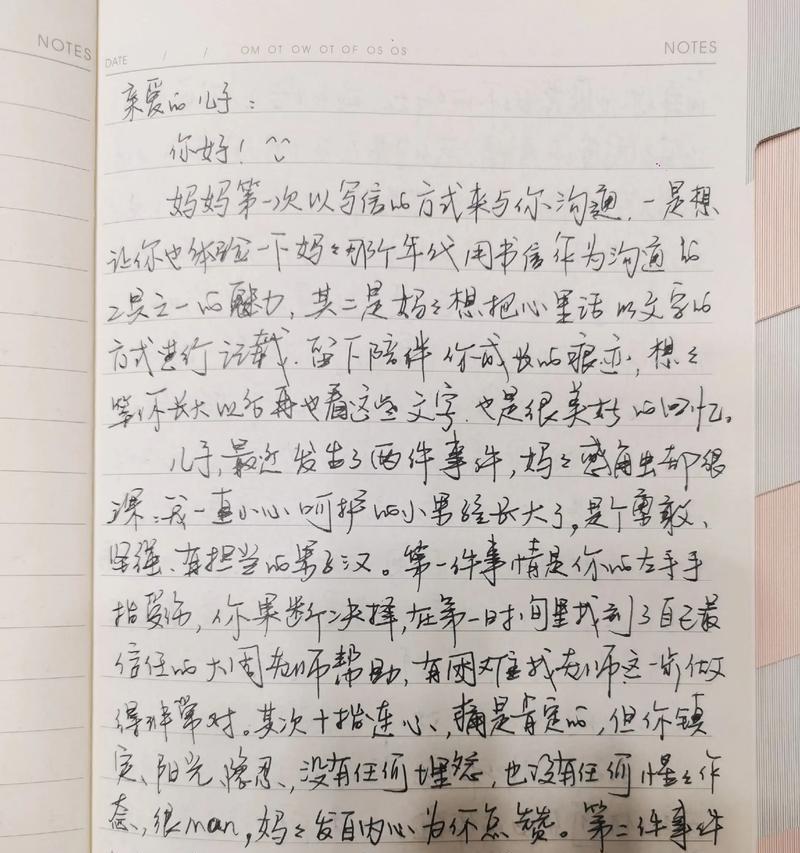 NOTES
DATE / / OM OT OW OT OF OS OS NOTES
亲爱的儿子：
你好！
妈妈第一次以写信的方式来与你沟通，一是想
让你也体验一下妈々那个年代用书信作为沟通的
工具之一的魅力，其二是妈々想把心里话以文字的
方式进行记载，留下陪伴你成长的痕迹，想々
等你长大以后再也看这些文字，也是很美好的回忆。
儿子，最近发生了两件事件，妈々感角虫却很
深：我一直小心呵护的小男孩长大了，是个勇敢、
坚强、有担当的男子汉。第一件事情是你的左手手
指受伤，你果断决择，在第一时间里找到了自己最
信任的大周老师帮助，有困难找老师这一步做
得非常对。其次十指连心，痛是肯定的，但你镇
定、阳光、隐忍，没有任何埋怨，也没有任何惺々作
态，很man，妈々发自内心为你点赞。第二件事件